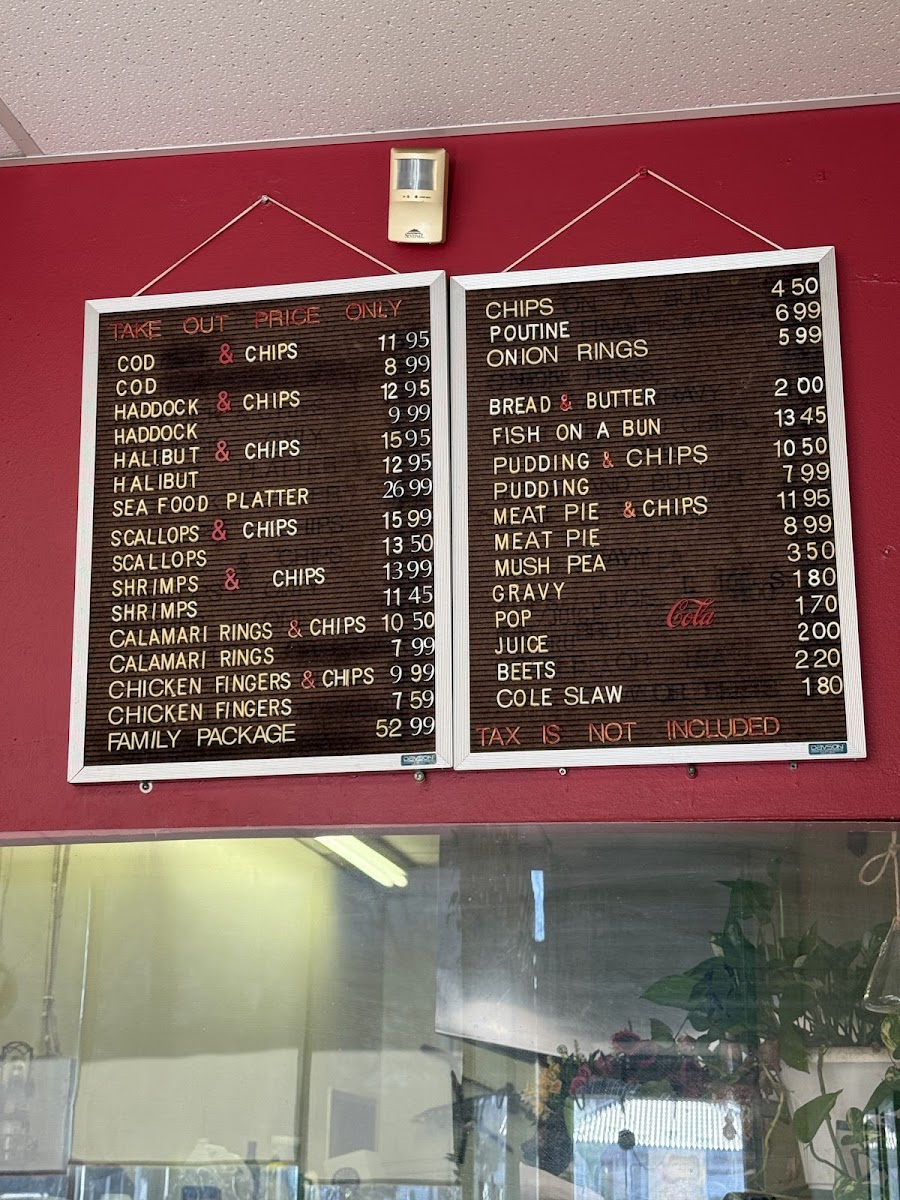 TAKE OUT PRICE ONLY
COD & CHIPS 11 95
COD 8 99
HADDOCK & CHIPS 12 95
HADDOCK 9 99
HALIBUT & CHIPS 15 95
HALIBUT 12 95
SEA FOOD PLATTER 26 99
SCALLOPS & CHIPS 15 99
SCALLOPS 13 50
SHRIMPS & CHIPS 13 99
SHRIMPS 11 45
CALAMARI RINGS & CHIPS 10 50
CALAMARI RINGS 7 99
CHICKEN FINGERS & CHIPS 9 99
CHICKEN FINGERS 7 59
FAMILY PACKAGE 52 99
DAVSON
CHIPS 4 50
POUTINE 6 99
ONION RINGS 5 99
BREAD & BUTTER 2 00
FISH ON A BUN 13 45
PUDDING & CHIPS 10 50
PUDDING 7 99
MEAT PIE & CHIPS 11 95
MEAT PIE 8 99
MUSH PEA 3 50
GRAVY 1 80
POP Cola 1 70
JUICE 2 00
BEETS 2 20
COLE SLAW 1 80
TAX IS NOT INCLUDED
DAVSON